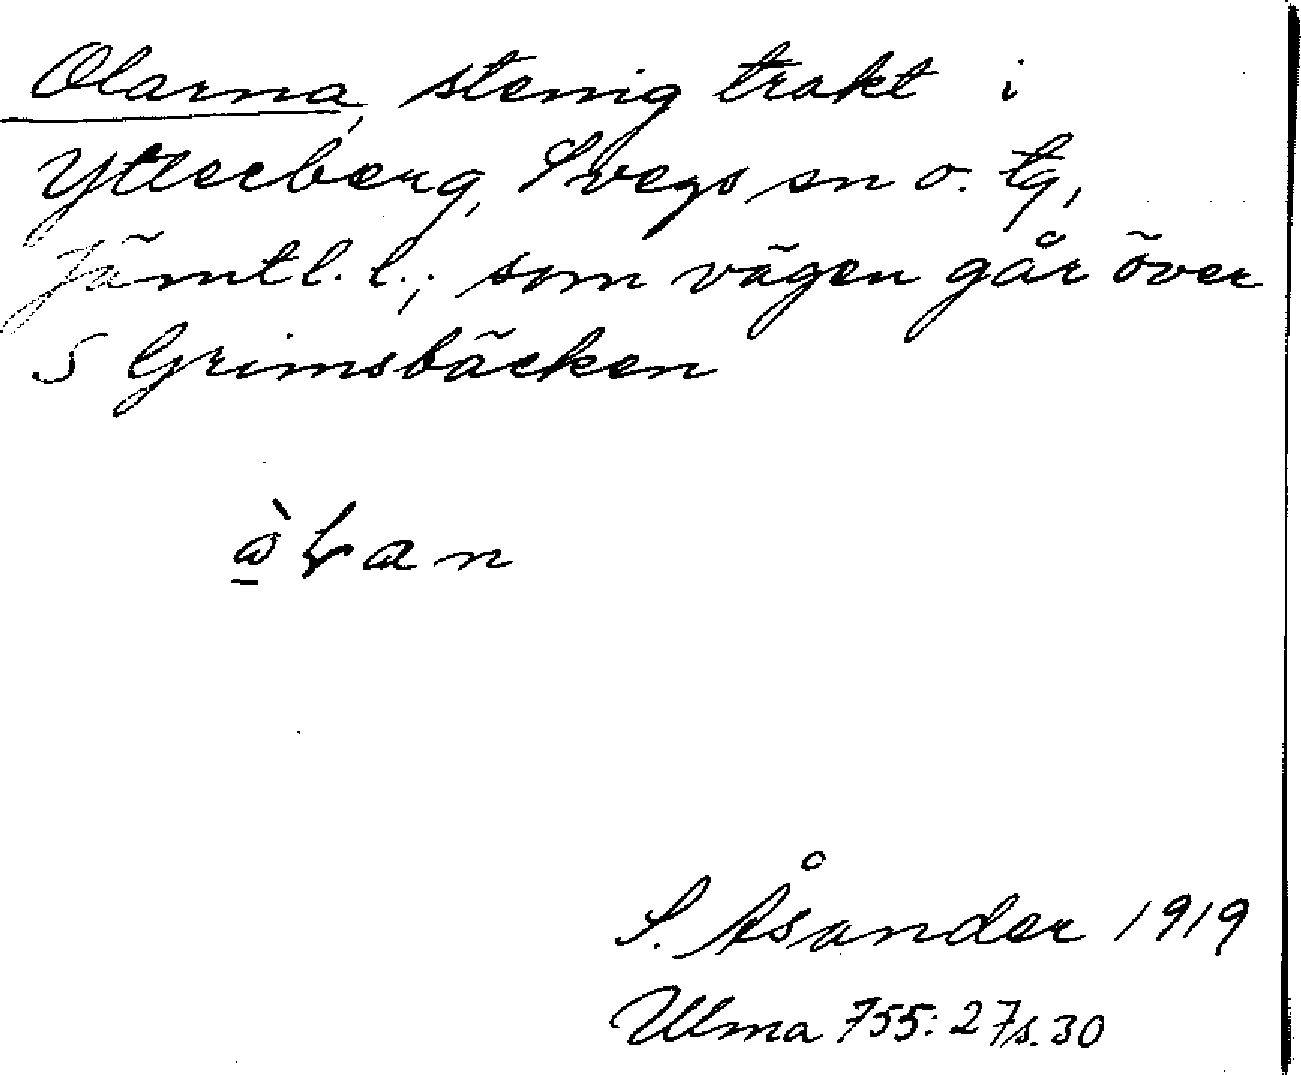 Olarna, stenig trakt i
Ytterberg, Svegs sn o. tg,
Jämtl. l.; som vägen går över
S Grimsbäcken
S. Åsander 1919
Ulma 755: 27 s. 30